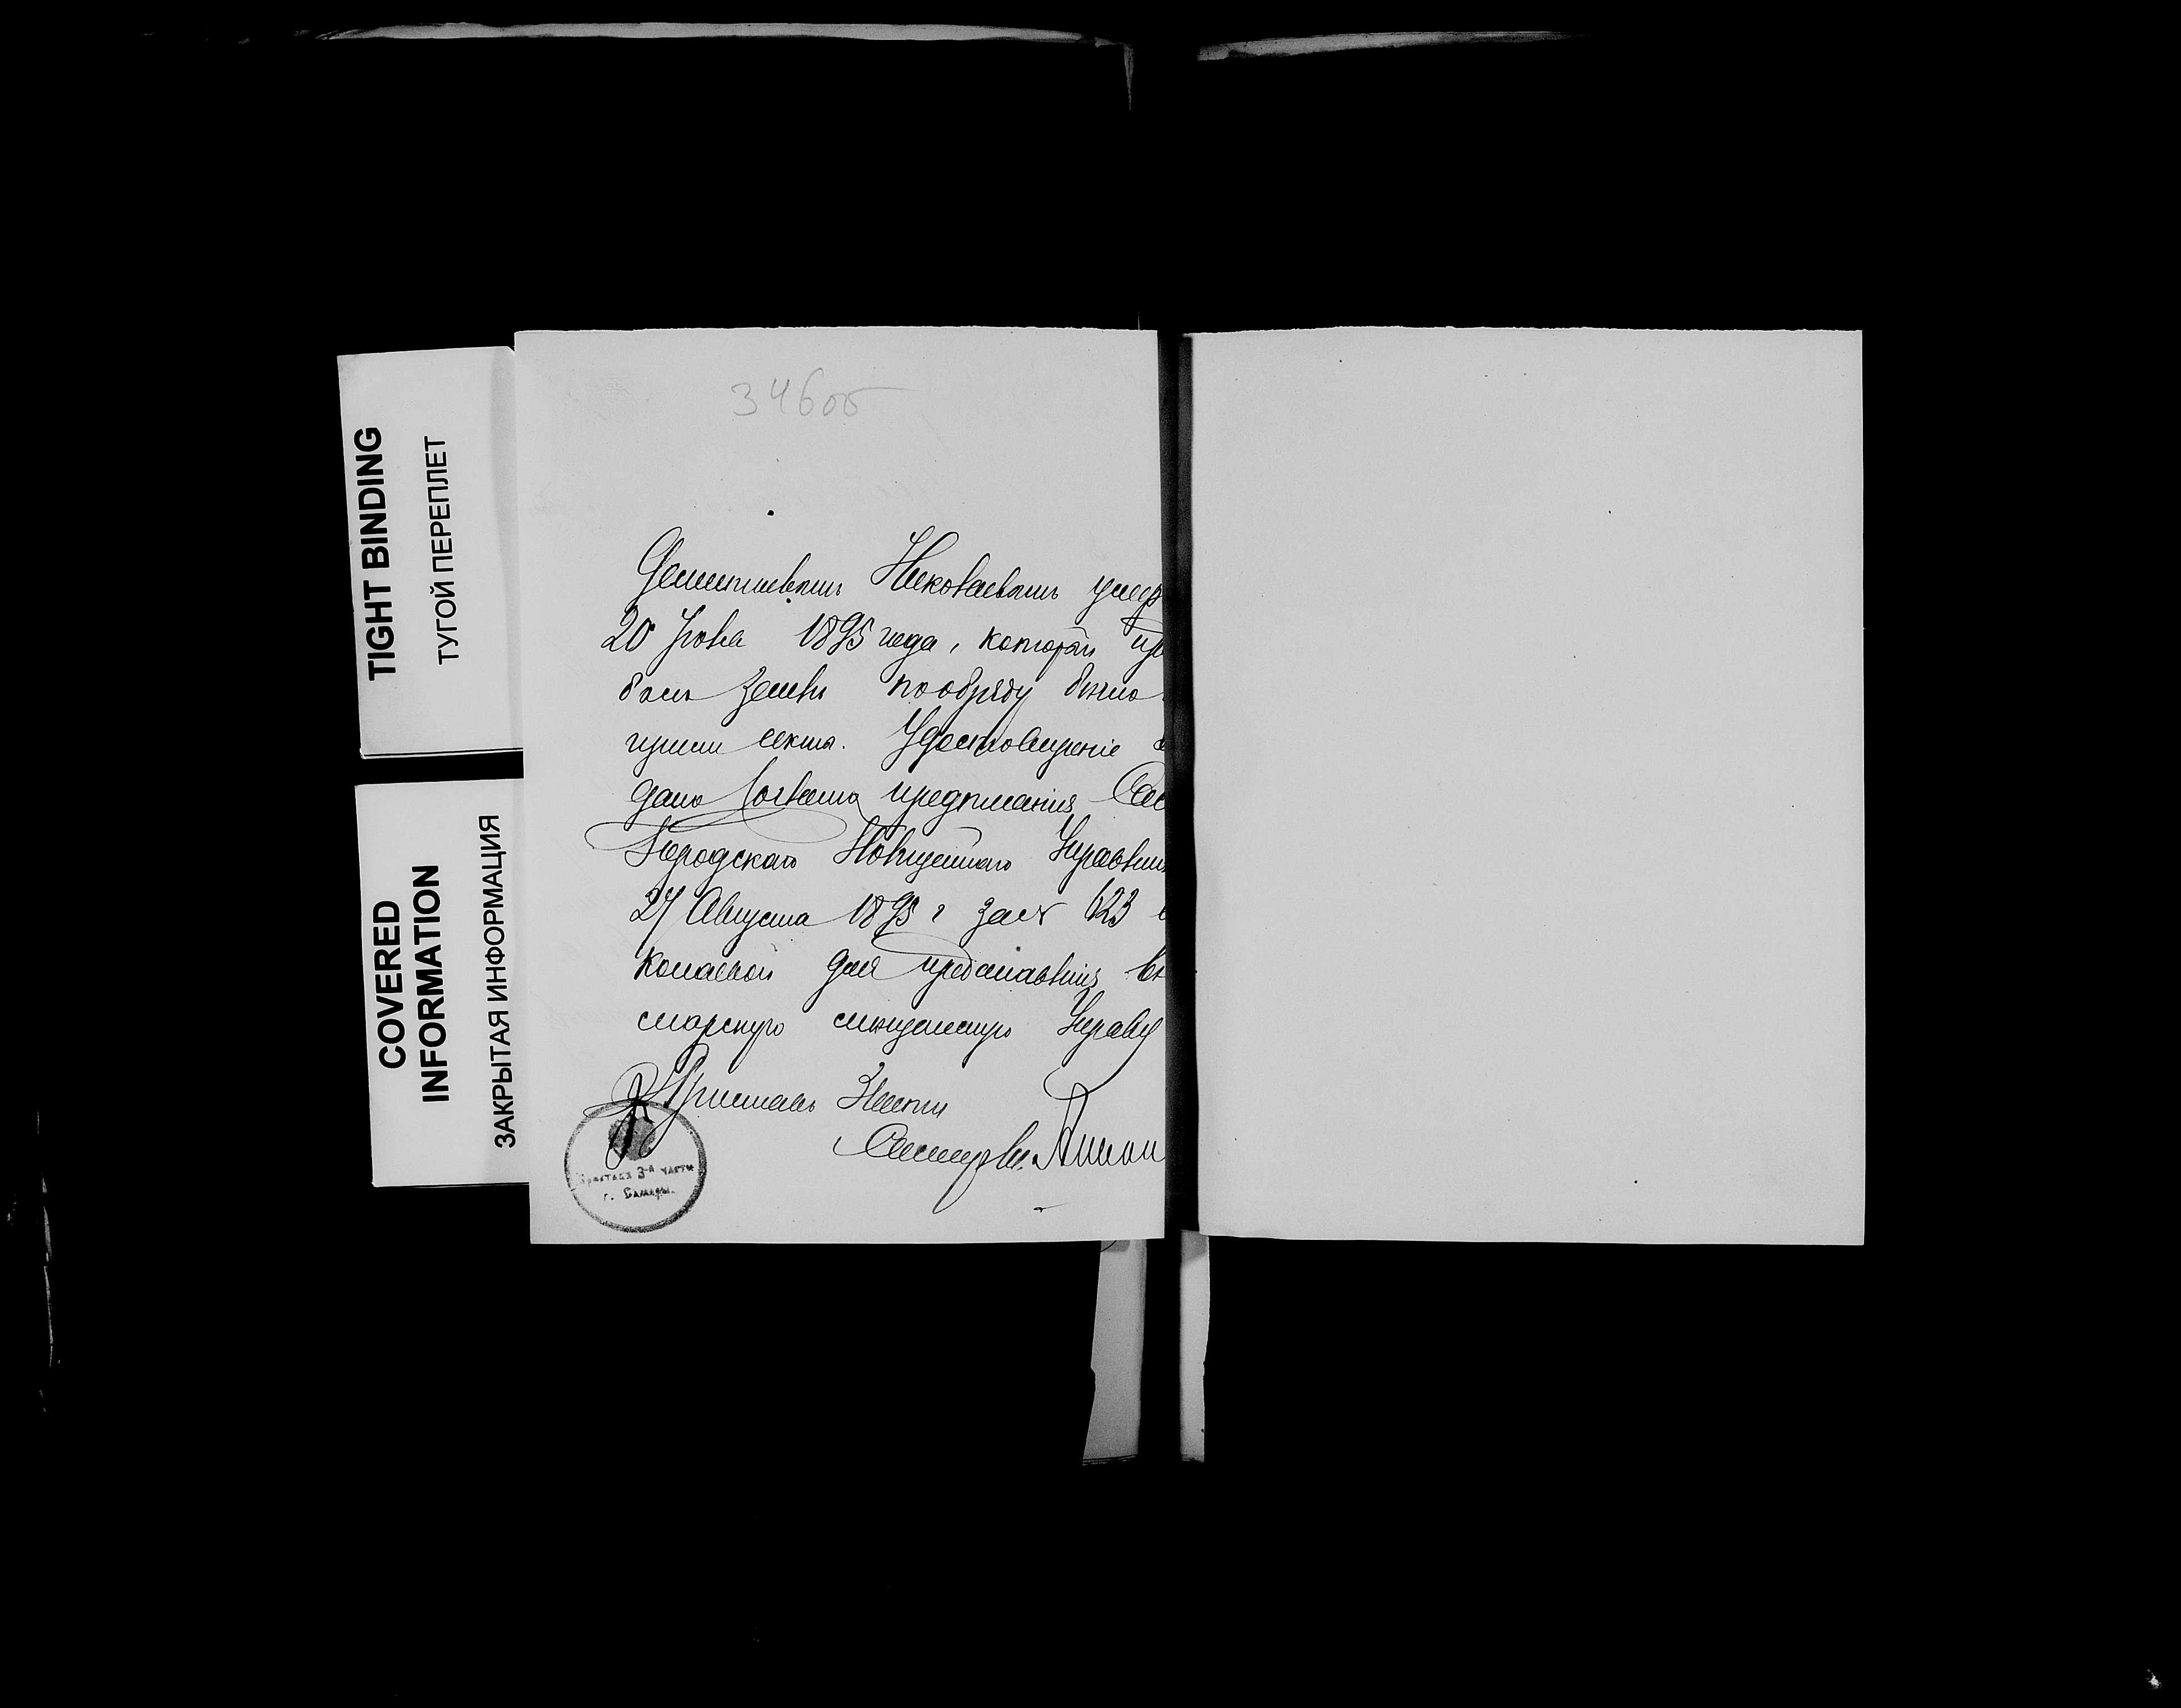 TIGHT BINDING
ТУГОЙ ПЕРЕПЛЕТ
COVERED
INFORMATION
ЗАКРЫТАЯ ИНФОРМАЦИЯ
346об
Николаевымъ умер
20 Іюня 1895 года, который пре
данъ землѣ по обряду бѣло
ризцы секты. Удостовѣреніе
дано Согласно предписанія Сам
Городскаго Полицейскаго Управленія
27 Августа 1895 г за № 623
для представленія въ
марскую мѣщанскую Управу
Приставъ 3 части
г. Самары
Приставъ 3-й части
г. Самары.